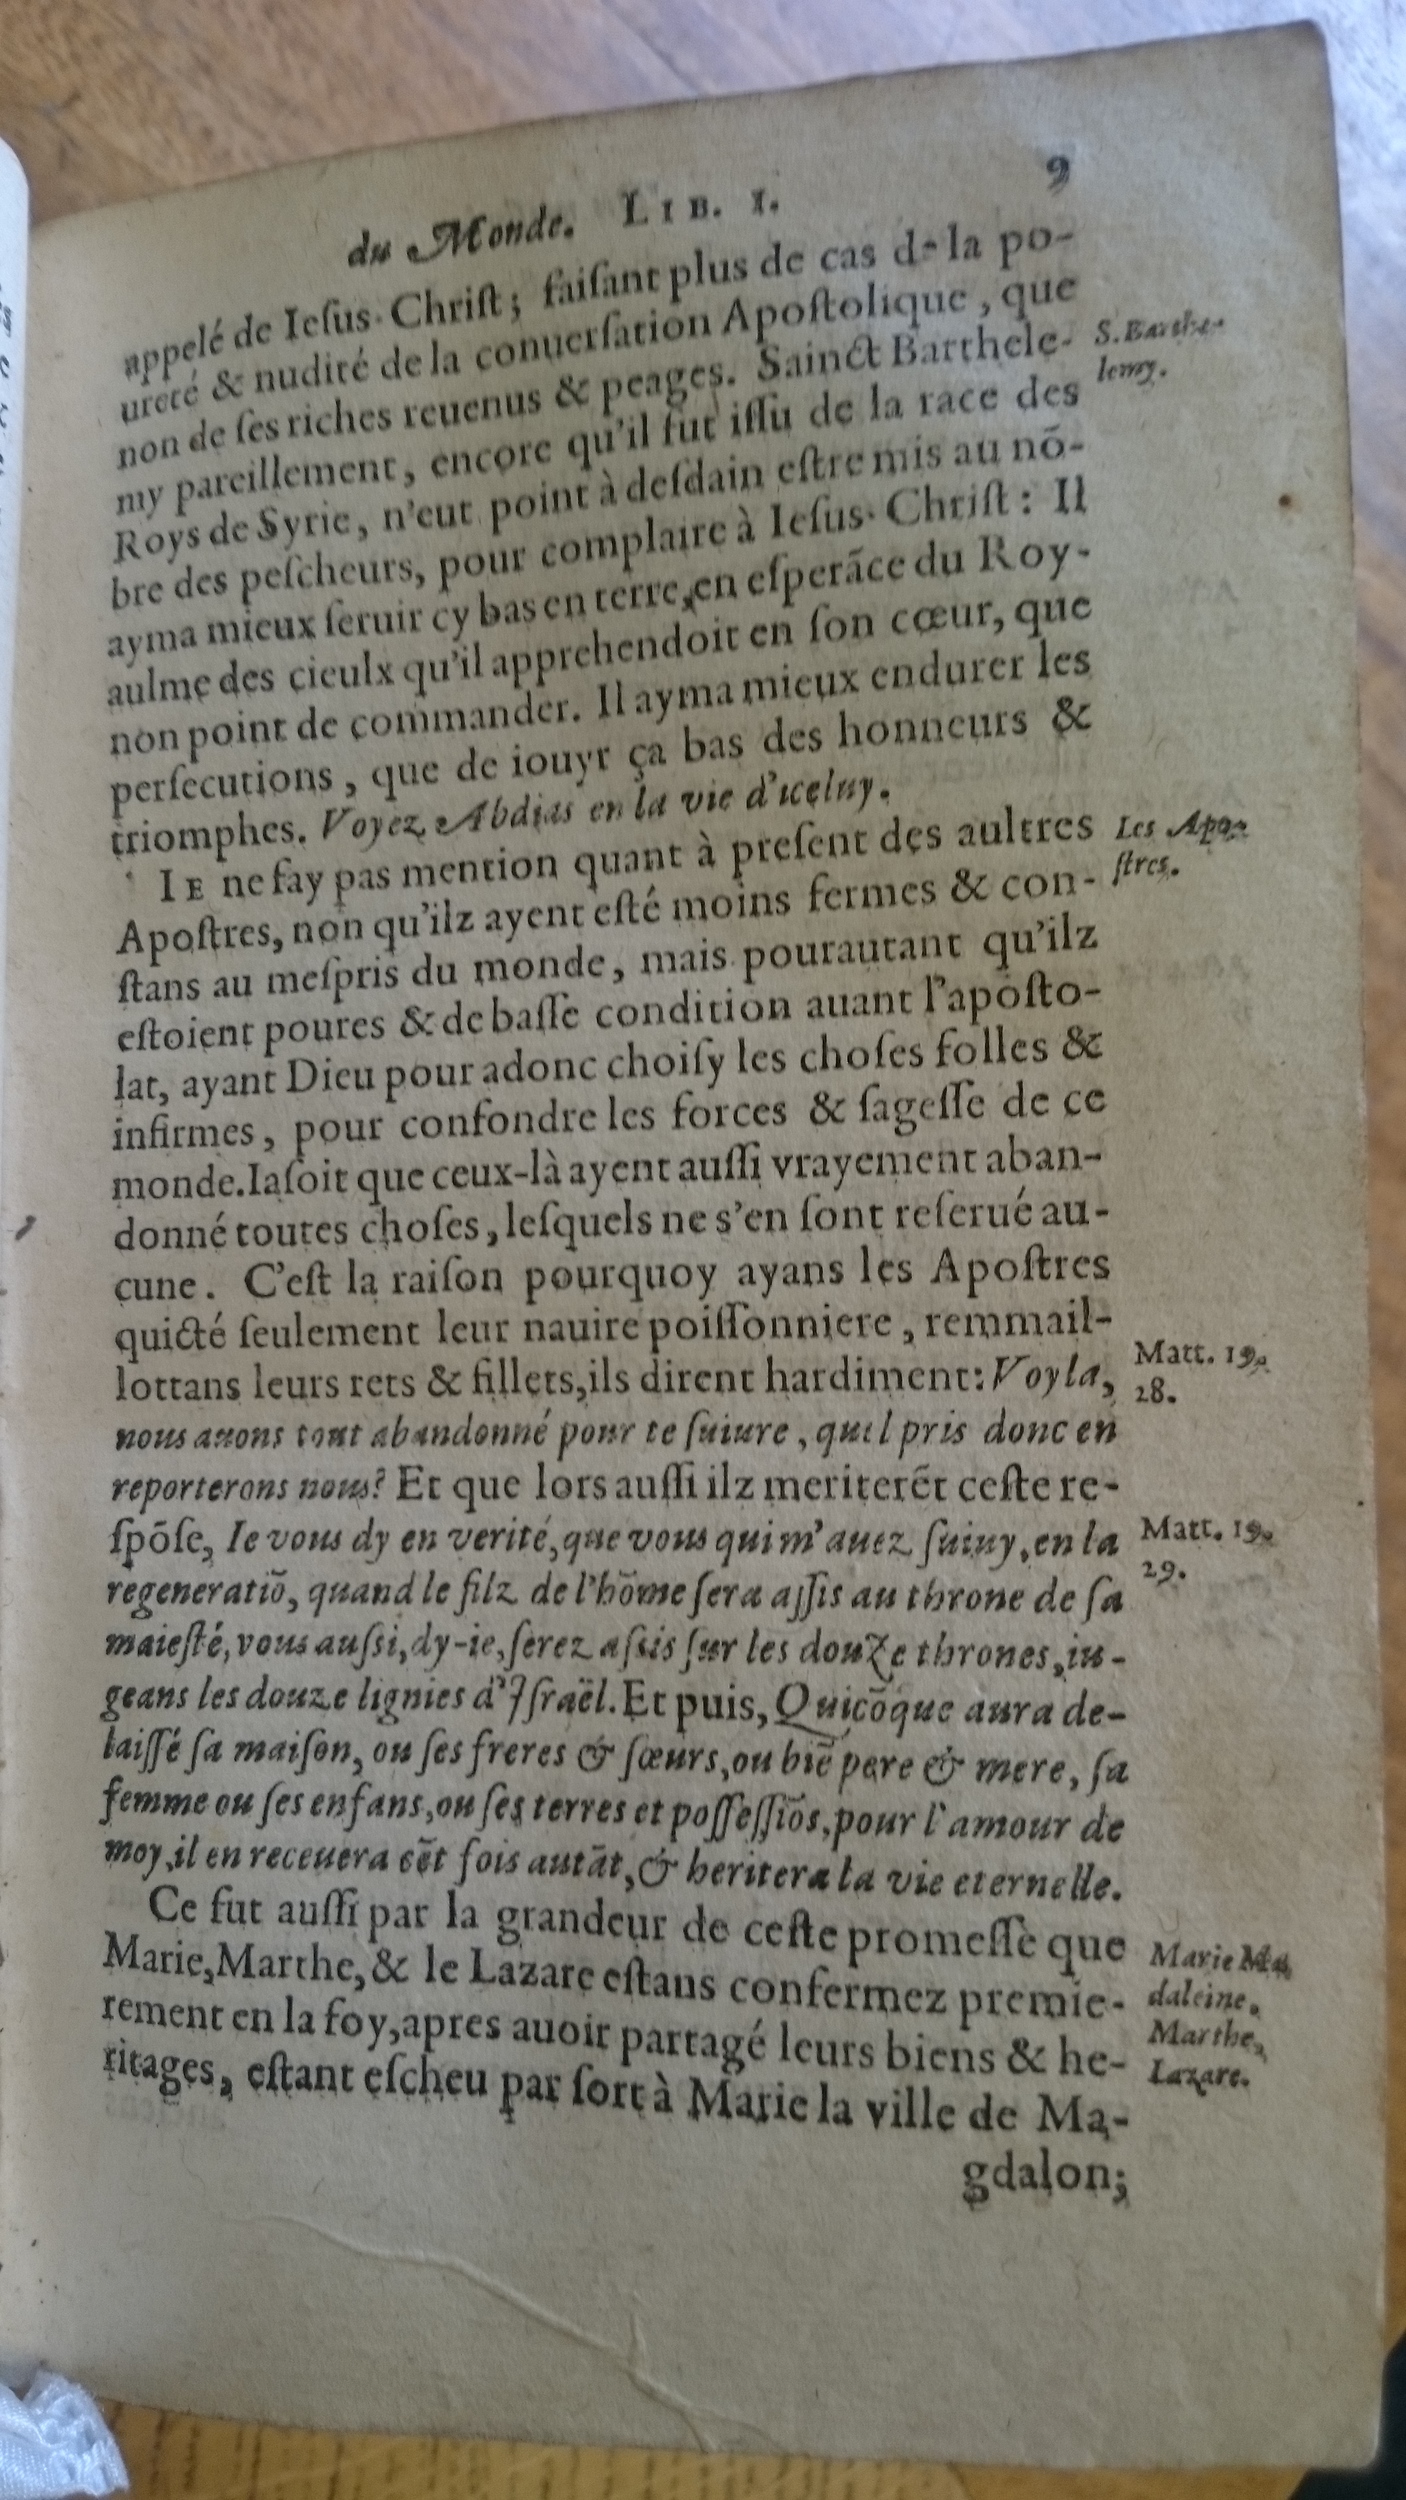 du Monde. LIB. I. 9
appelé de Ieſus-Chriſt; faiſant plus de cas de la po-
ureté & nudité de la conuerſation Apoſtolique, que
non de ſes riches reuenus & peages. Sainct Barthele-
S. Barthe-
lemy.
my pareillement, encore qu'il fut iſſu de la race des
Roys de Syrie, n'eut point à deſdain eſtre mis au nõ-
bre des peſcheurs, pour complaire à Ieſus-Chriſt: Il
ayma mieux ſeruir cy bas en terre, en eſperãce du Roy-
aulme des cieulx qu'il apprehendoit en ſon cœur, que
non point de commander. Il ayma mieux endurer les
perſecutions, que de iouyr ça bas des honneurs &
triomphes. Voyez Abdias en la vie d'iceluy.
IE ne fay pas mention quant à preſent des aultres
Les Apo-
ſtres.
Apoſtres, non qu'ilz ayent eſté moins fermes & con-
ſtans au meſpris du monde, mais pourautant qu'ilz
eſtoient poures & de baſſe condition auant l'apoſto-
lat, ayant Dieu pour adonc choiſy les choſes folles &
infirmes, pour confondre les forces & ſageſſe de ce
monde. Iaſoit que ceux-là ayent auſſi vrayement aban-
donné toutes choſes, leſquels ne s'en ſont reſerué au-
cune. C'eſt la raiſon pourquoy ayans les Apoſtres
quicté ſeulement leur nauire poiſſonniere, remmail-
lottans leurs rets & fillets, ils dirent hardiment: Voyla,
Matt. 19.
28.
nous auons tout abandonné pour te ſuiure, quel pris donc en
reporterons nous? Et que lors auſſi ilz meriterẽt ceſte re-
ſpõſe, Ie vous dy en verité, que vous qui m'auez ſuiuy, en la
Matt. 19.
29.
regeneratiõ, quand le filz de l'hõme ſera aſſis au throne de ſa
maieſté, vous auſſi, dy-ie, ſerez aſsis ſur les douze thrones, iu-
geans les douze lignies d'Iſraël. Et puis, Quicõque aura de-
laiſſé ſa maiſon, ou ſes freres & ſœurs, ou biẽ pere & mere, ſa
femme ou ſes enfans, ou ſes terres et poſſeſſiõs, pour l'amour de
moy, il en receuera cẽt fois autãt, & heritera la vie eternelle.
Ce fut auſſi par la grandeur de ceſte promeſſe que
Marie, Marthe, & le Lazare eſtans confermez premie-
rement en la foy, apres auoir partagé leurs biens & he-
ritages, eſtant eſcheu par ſort à Marie la ville de Ma-
Marie Ma
daleine.
Marthe,
Lazare.
gdalon;